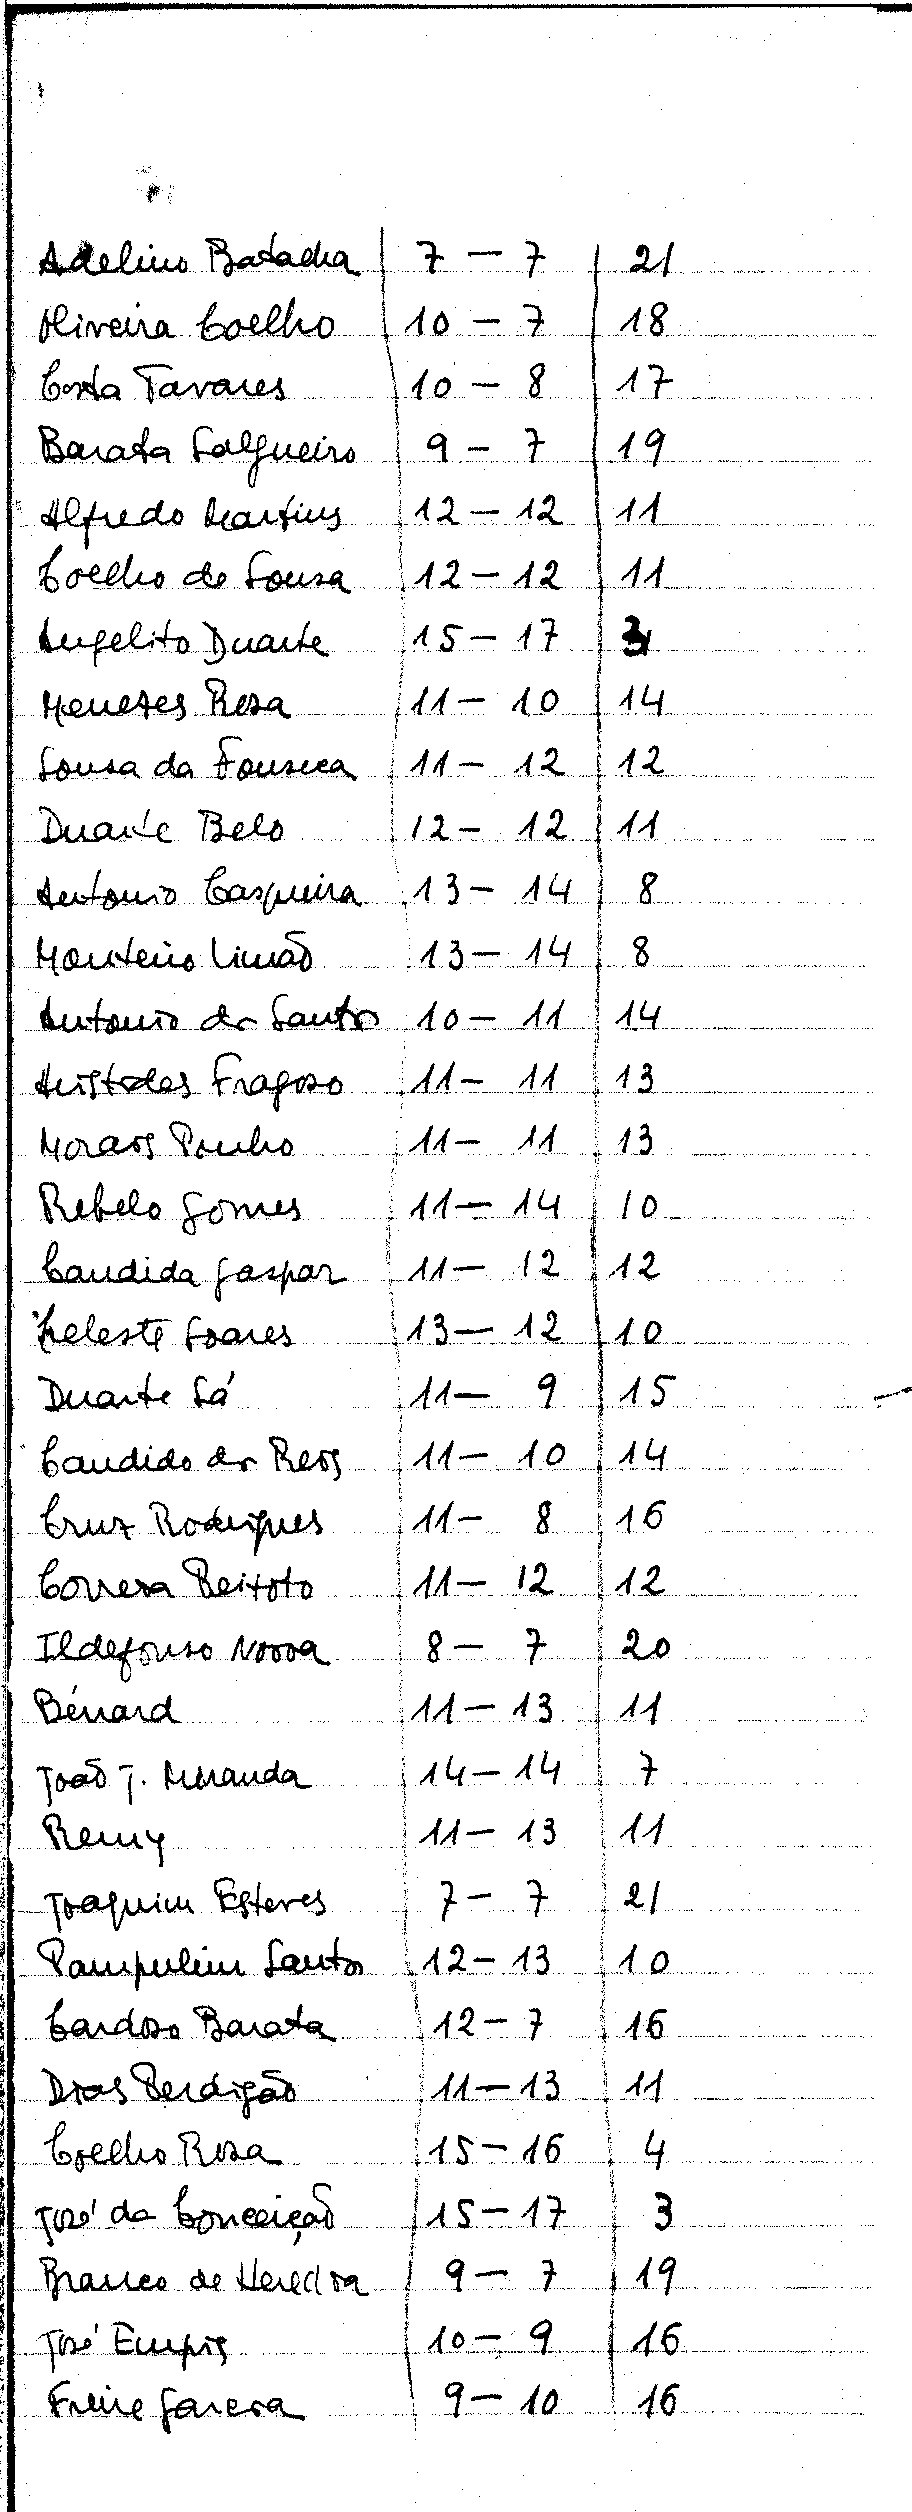 Adelino Batacha 7 – 7 21
Oliveira Coelho 10 – 7 18
Costa Tavares 10 – 8 17
Barata Salgueiro 9 – 7 19
Alfredo Martins 12 – 12 11
Coelho de Sousa 12 – 12 11
Angelito Duarte 15 – 17 3
Meneses Rosa 11 – 10 14
Sousa da Fonseca 11 – 12 12
Duarte Belo 12 – 12 11
Antonio Casqueira 13 – 14 8
Monteiro Limão 13 – 14 8
Antonio dos Santos 10 – 11 14
Aristides Fragoso 11 – 11 13
Morais 11 – 11 13
Rebelo Gomes 11 – 14 10
Candida Gaspar 11 – 12 12
Celeste Soares 13 – 12 10
Duarte Sá 11 – 9 15
Candido dos Reis 11 – 10 14
Cruz Rodrigues 11 – 8 16
Correia Peixoto 11 – 12 12
Ildefonso 8 – 7 20
Bénard 11 – 13 11
João J. Miranda 14 – 14 7
Remy 11 – 13 11
Joaquim Esteves 7 – 7 21
Pampulim Santos 12 – 13 10
Cardoso Barata 12 – 7 16
Dias Perdigão 11 – 13 11
Coelho Rosa 15 – 16 4
José da Conceição 15 – 17 3
Branco de Heredia 9 – 7 19
José Empis 10 – 9 16
Freire Garcia 9 – 10 16